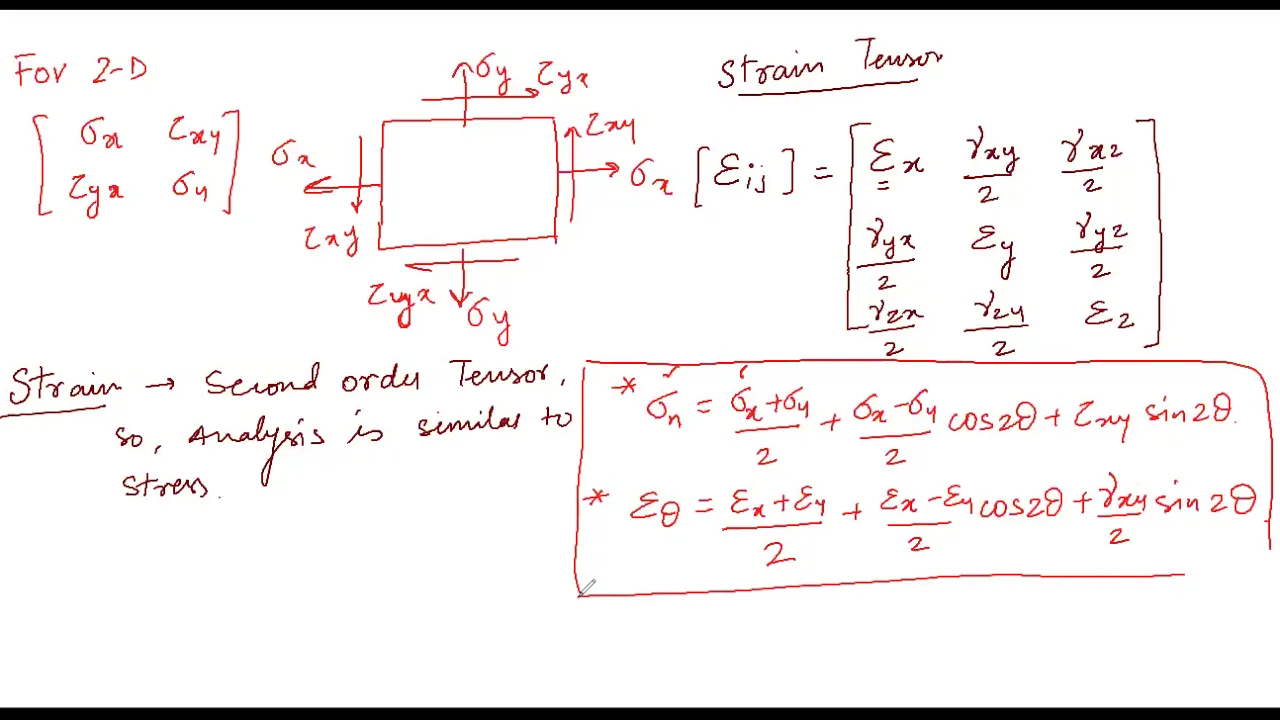 For 2-D
[ σx τxy
τyx σy ]
σy τyx
τxy
σx
σx
τxy
τyx
σy
Strain Tensor
[εij] = [ εx γxy/2 γxz/2
γyx/2 εy γyz/2
γzx/2 γzy/2 εz ]
Strain → Second order Tensor,
so, Analysis is similar to
stress.
* σn = σx+σy/2 + σx-σy/2 cos2θ + τxy sin2θ.
* εθ = εx+εy/2 + εx-εy/2 cos2θ + γxy/2 sin2θ